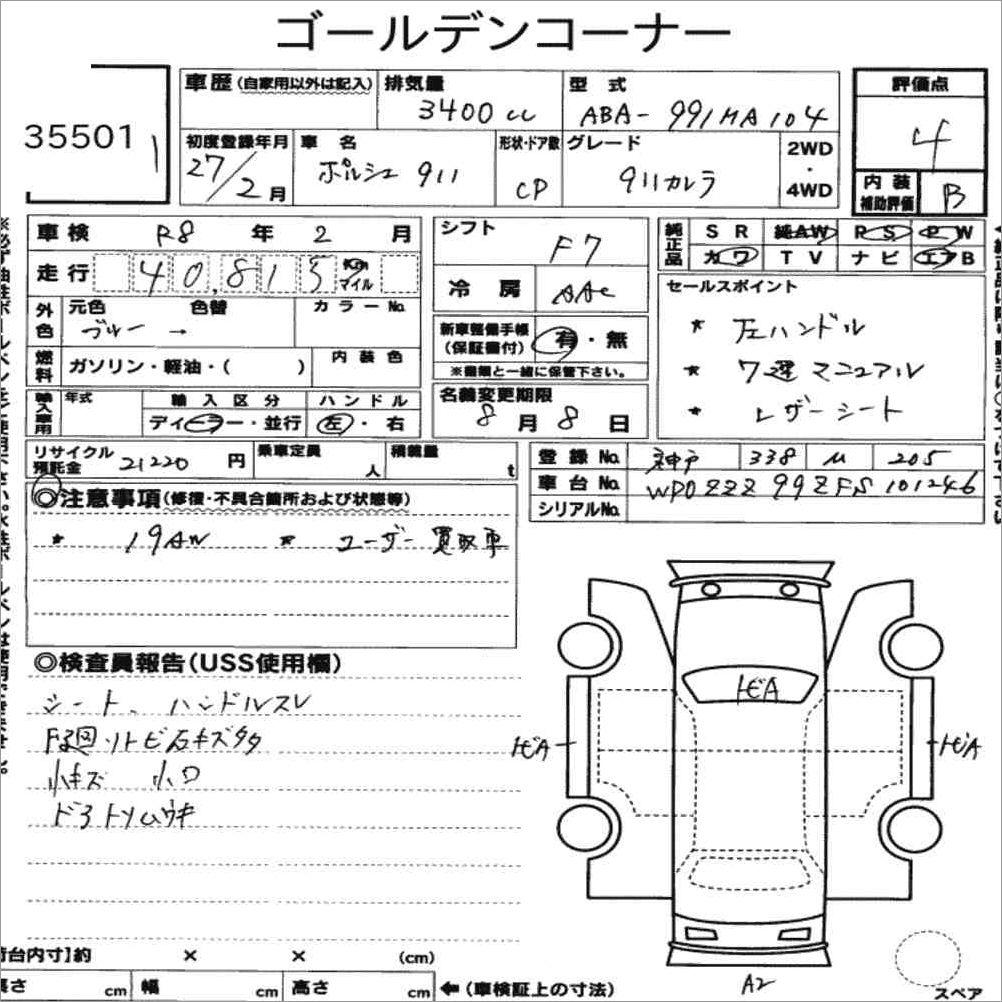 ゴールデンコーナー
35501 1
車歴(自家用以外は記入) 排気量 3400cc 型式 ABA-991MA104 評価点 4
初度登録年月 27/2月 車名 ポルシェ 911 形状・ドア数 CP グレード 911カレラ 2WD・4WD 内装補助評価 B
車検 R8年 2月 シフト F7 純正品 SR 純AW PS PW
走行 40,815 Km マイル 冷房 AAC カワ TV ナビ エアB
外色 元色 ブルー → 色替 カラーNo. セールスポイント
新車整備手帳(保証書付) 有・無
※書類と一緒に保管下さい。
* 左ハンドル
* 7速マニュアル
* レザーシート
燃料 ガソリン・軽油・( ) 内装色
輸入車用 年式 輸入区分 ディーラー・並行 ハンドル 左・右
名義変更期限 8月8日
リサイクル預託金 21220円 乗車定員 人 積載量 t
登録No. 神戸 338 205
車台No. WP0ZZZ99ZFS101246
シリアルNo.
◎注意事項(修復・不具合箇所および状態等)
* 19AW * ユーザー買取車
◎検査員報告(USS使用欄)
シート、ハンドルスレ
小キズ
トビA
トビA
トビA
A2
荷台内寸]約 × × (cm)
長さ cm 幅 cm 高さ cm ←(車検証上の寸法)
スペア